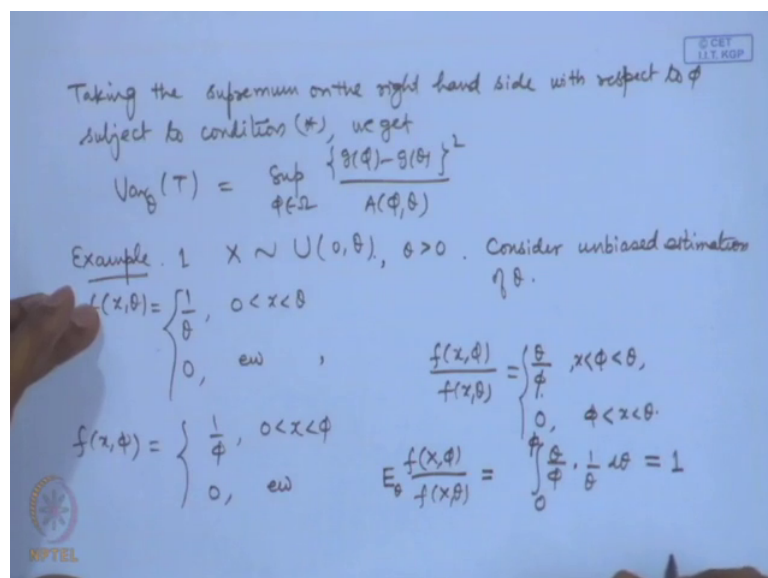 © CET
I.I.T. KGP
Taking the supremum on the right hand side with respect to φ
subject to condition (*), we get
Var_θ (T) = Sup_{φ∈Ω} {g(φ)-g(θ)}² / A(φ,θ)
Example. 1 X ~ U(0,θ), θ>0. Consider unbiased estimation
of θ.
f(x,θ) = { 1/θ, 0<x<θ
0, ew ,
f(x,φ) / f(x,θ) = { θ/φ, x<φ<θ,
0, φ<x<θ.
f(x,φ) = { 1/φ, 0<x<φ
0, ew
E_θ f(x,φ) / f(x,θ) = ∫₀^φ θ/φ · 1/θ dθ = 1
NPTEL